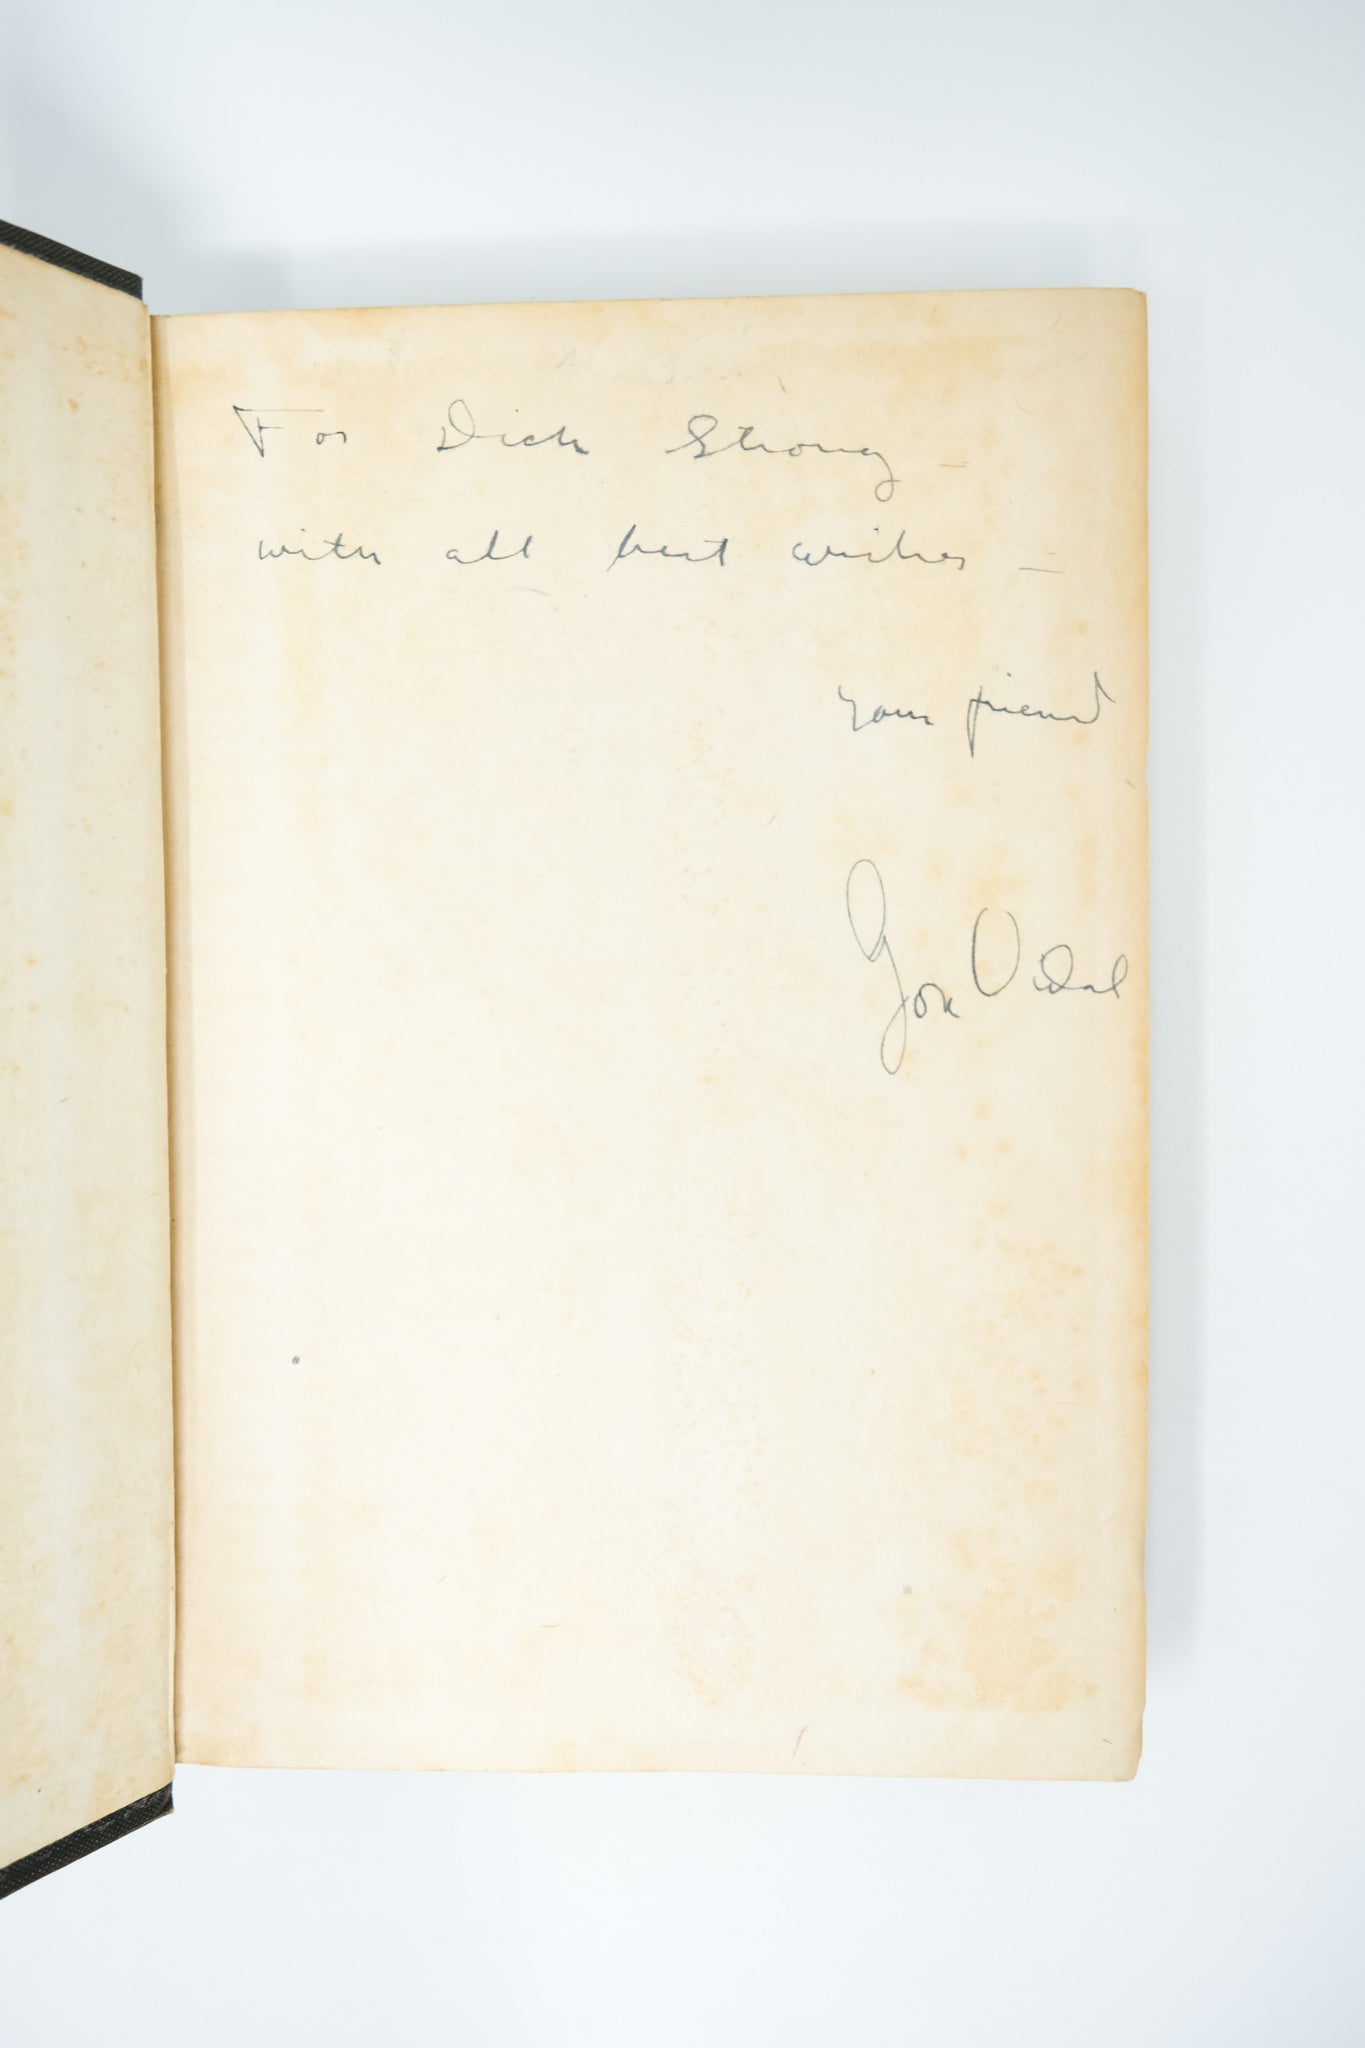 For Dick Strong –
with all best wishes –
your friend
Gore Vidal